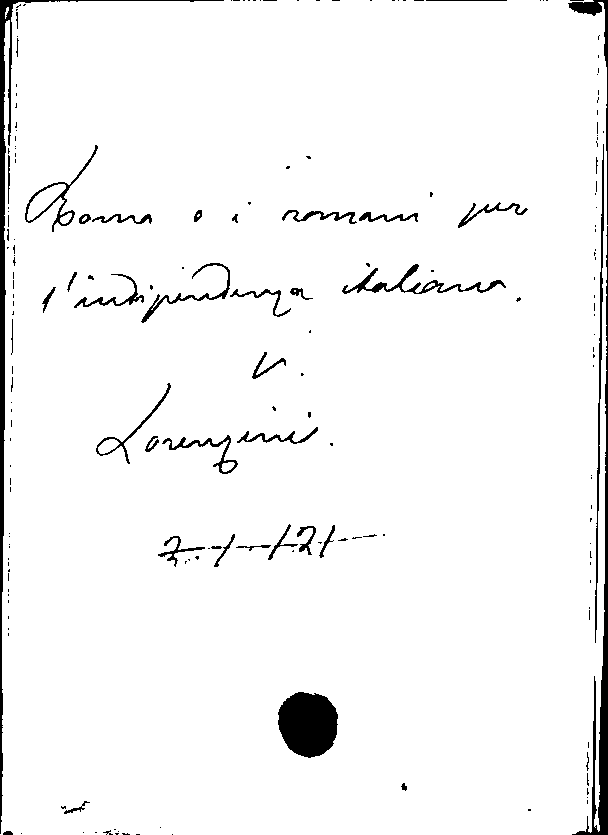 Roma e i romani per
l'indipendenza italiana.
V.
Lorenzini.